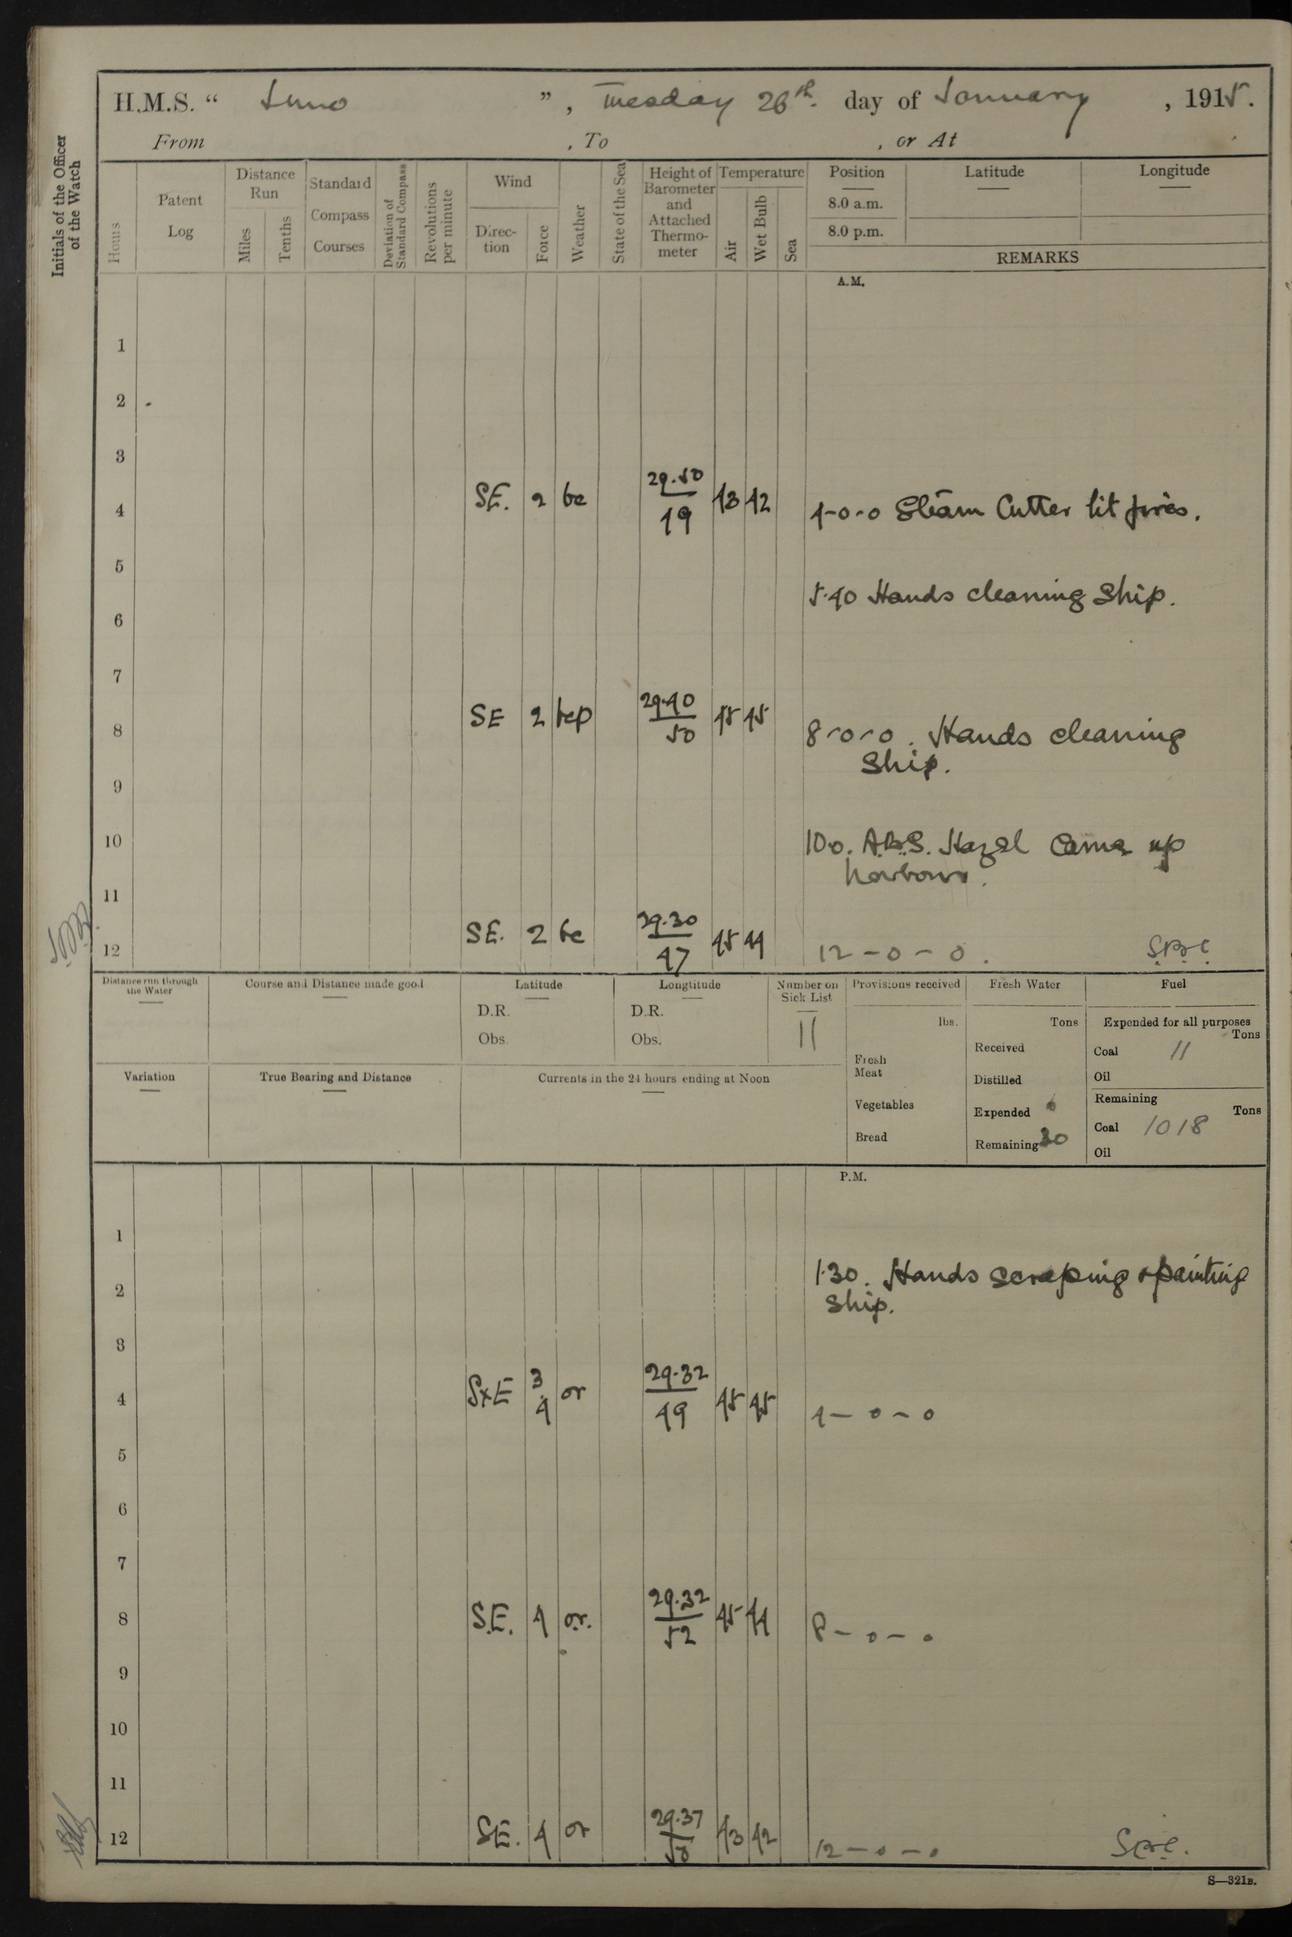 H.M.S. “ Juno ” , Tuesday 26th day of January , 1915.
From , To , or At
Initials of the Officer of the Watch
Hours
Patent Log
Distance Run
Miles
Tenths
Standard Compass Courses
Deviation of Standard Compass
Revolutions per minute
Wind
Direction
Force
Weather
State of the Sea
Height of Barometer and Attached Thermometer
Temperature
Air
Wet Bulb
Sea
Position
8.0 a.m.
8.0 p.m.
Latitude
Longitude
REMARKS
A.M.
1
2
3
4 SE. 2 bc 29.50 49 43 42 4-0-0 Steam Cutter lit fires.
5
5.40 Hands cleaning Ship.
6
7
8 SE 2 bcp 29.40 50 45 45 8-0-0. Hands cleaning
Ship.
9
10 10.0. A.B.S. Hazel Came up
harbour.
11
12 SE. 2 bc 29.30 47 45 44 12-0-0.
Distance run through the Water
Course and Distance made good
Latitude
D.R.
Obs.
Longtitude
D.R.
Obs.
Number on Sick List
11
Provisions received
lbs.
Fresh Meat
Vegetables
Bread
Fresh Water
Tons
Received
Distilled
Expended
Remaining 30
Fuel
Expended for all purposes
Tons
Coal 11
Oil
Remaining
Tons
Coal 1018
Oil
Variation
True Bearing and Distance
Currents in the 24 hours ending at Noon
P.M.
1
2 1.30. Hands scraping & painting
Ship.
3
4 SxE 3.4 or 29.32 49 45 45 4-0-0
5
6
7
8 S.E. 4 or. 29.32 52 45 44 8-0-0
9
10
11
12 SE. 4 or 29.37 50 43 42 12-0-0
S—321B.